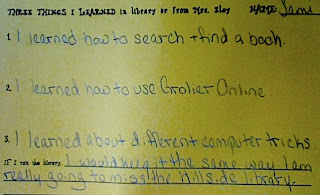 THREE THINGS I LEARNED in library or from Mrs. Eley NAME: Jami
1. I learned how to search + find a book.
2. I learned how to use Grolier Online.
3. I learned about different computer tricks.
If I ran the library, I would keep it the same way. I am
really going to miss the Hillside library.